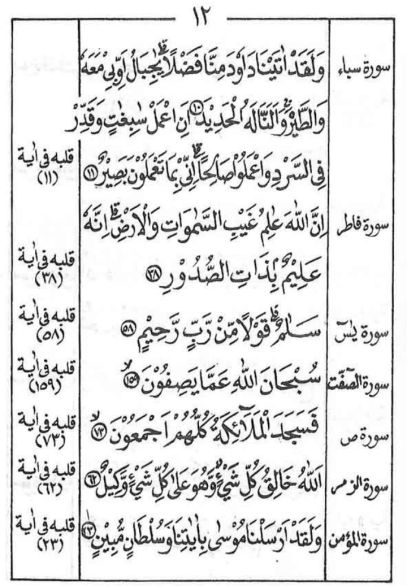 ١٢
سورة سباء وَلَقَدْ اٰتَيْنَا دَاوٗدَ مِنَّا فَضْلًا ؕ يٰجِبَالُ اَوِّبِیْ مَعَهٗ
وَالطَّيْرَ ۚ وَاَلَنَّا لَهُ الْحَدِيْدَ ۙ﴿١٠﴾ اَنِ اعْمَلْ سٰبِغٰتٍ وَّقَدِّرْ
فِی السَّرْدِ وَاعْمَلُوْا صَالِحًا ؕ اِنِّیْ بِمَا تَعْمَلُوْنَ بَصِيْرٌ ﴿١١﴾ قلبه فی اٰية (١١)
سورة فاطر اِنَّ اللّٰهَ عٰلِمُ غَيْبِ السَّمٰوَاتِ وَالْاَرْضِ ؕ اِنَّهٗ
عَلِيْمٌۢ بِذَاتِ الصُّدُوْرِ ﴿٣٨﴾ قلبه فی اٰية (٣٨)
سورة يٰسٓ سَلٰمٌ ۟ قَوْلًا مِّنْ رَّبٍّ رَّحِيْمٍ ﴿٥٨﴾ قلبه فی اٰية (٥٨)
سورة الصّٰفّٰت سُبْحَانَ اللّٰهِ عَمَّا يَصِفُوْنَ ۙ﴿١٥٩﴾ قلبه فی اٰية (١٥٩)
سورة ص فَسَجَدَ الْمَلٰٓئِكَةُ كُلُّهُمْ اَجْمَعُوْنَ ۙ﴿٧٣﴾ قلبه فی اٰية (٧٣)
سورة الزمر اَللّٰهُ خَالِقُ كُلِّ شَیْءٍ ؗ وَّهُوَ عَلٰی كُلِّ شَیْءٍ وَّكِيْلٌ ﴿٦٢﴾ قلبه فی اٰية (٦٢)
سورة المؤمن وَلَقَدْ اَرْسَلْنَا مُوْسٰی بِاٰيٰتِنَا وَسُلْطَانٍ مُّبِيْنٍ ۙ﴿٢٣﴾ قلبه فی اٰية (٢٣)